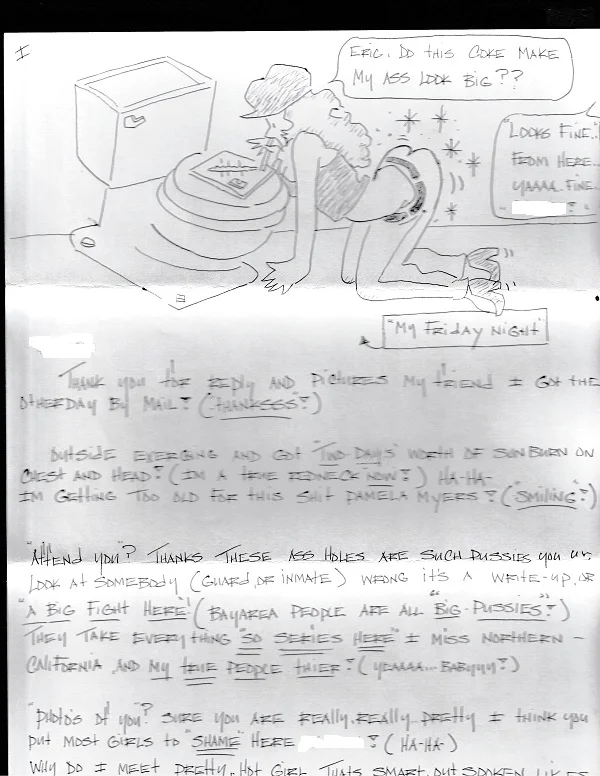 I
ERIC. DO THIS COKE MAKE
MY ASS LOOK BIG??
"LOOKS FINE..
FROM HERE..
YAAAA.. FINE..
"MY FRIDAY NIGHT"
THANK YOU FOR REPLY AND PICTURES MY FRIEND I GOT THE
OTHERDAY BY MAIL! (THANKSSS!)
OUTSIDE EXERCING AND GOT "TWO DAYS" WORTH OF SUN BURN ON
CHEST AND HEAD! (IM A TRUE REDNECK NOW!) HA-HA-
IM GETTING TOO OLD FOR THIS SHIT PAMELA MYERS! ("SMILING"!)
"ATTEND YOU"? THANKS THESE ASS HOLES ARE SUCH PUSSIES YOU
LOOK AT SOMEBODY (GUARD, OR INMATE) WRONG IT'S A WRITE-UP, OR
"A BIG FIGHT HERE! (BAYAREA PEOPLE ARE ALL "BIG-PUSSIES"!)
THEY TAKE EVERYTHING "SO SERIES HERE" I MISS NORTHERN -
CALIFORNIA AND MY TRUE PEOPLE THIER! (YEAAAA... BABYYY!)
"PHOTO'S OF YOU"? SURE YOU ARE REALLY, REALLY PRETTY I THINK YOU
PUT MOST GIRLS TO "SHAME" HERE ! (HA-HA-)
WHY DO I MEET PRETTY, HOT GIRL THATS SMART, OUT SPOKEN LIKES